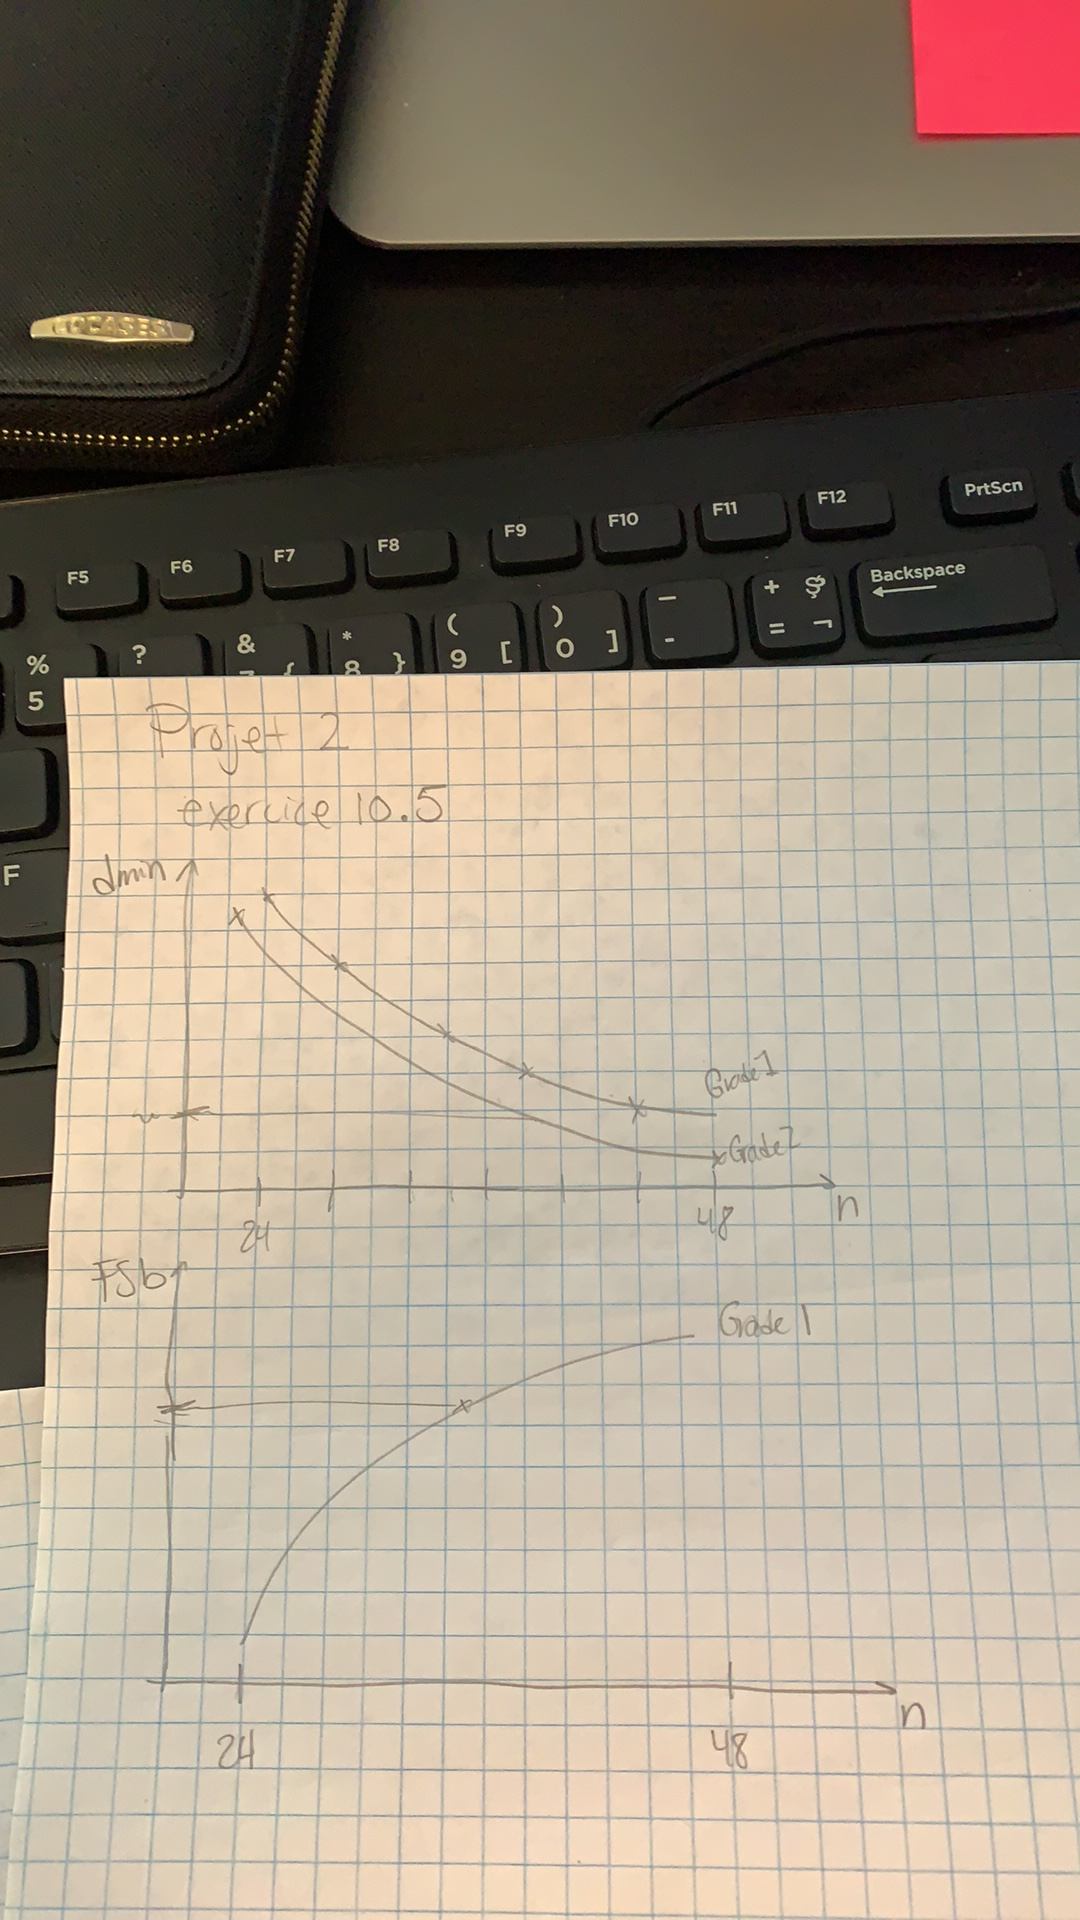 COCASES
F5 F6 F7 F8 F9 F10 F11 F12 PrtScn
% 5 ? & 7 { * 8 } ( 9 [ ) 0 ] _ - + = ¬ Backspace
F
Projet 2
exercice 10.5
dmin
Grade 1
Grade 2
24 48 n
FSb
Grade 1
24 48 n